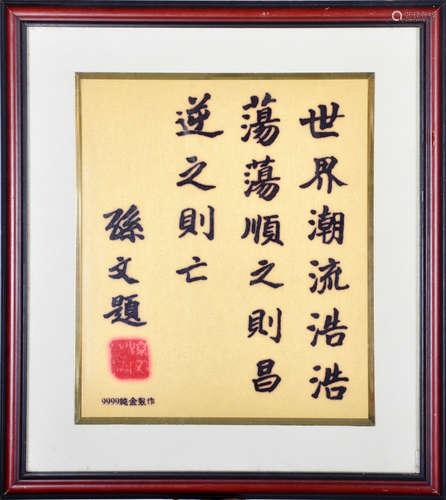 世界潮流浩浩
蕩蕩順之則昌
逆之則亡
孫文題
9999純金製作